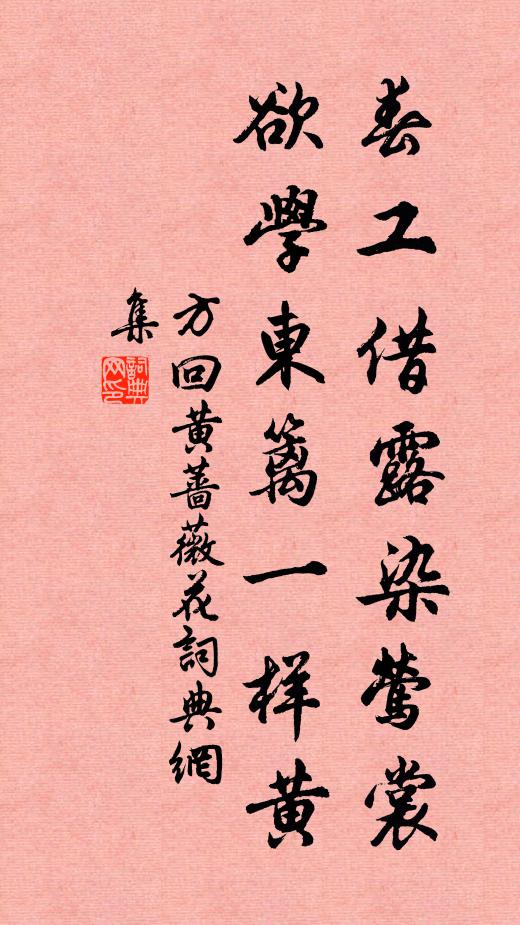 春工借露染鶯裳
欲學東籬一样黄
方回黄薔薇花詞典網
集
詞典网印